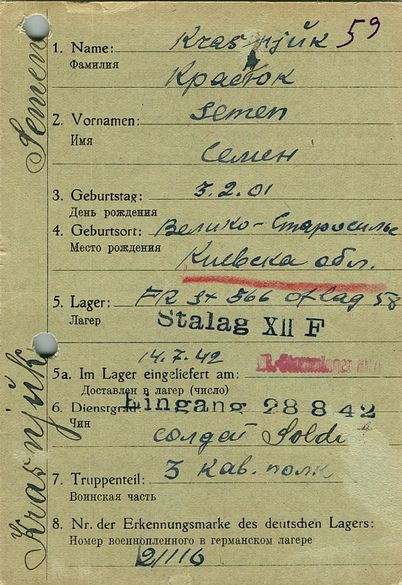 Krasnjúk 59
1. Name:
Фамилия
2. Vornamen: Semen
Имя
Семен
3. Geburtstag: 3.2.01
День рождения
4. Geburtsort: Велико-Старосилье
Место рождения
Киевска обл.
5. Lager: FR St 366 oflag 58
Лагер
Stalag XII F
14.7.42
5a. Im Lager eingeliefert am:
Доставлен в лагер (число)
6. Dienstgrad: Eingang 28 8 42
Чин
солдат Soldat
7. Truppenteil: 3 кав. полк
Воинская часть
8. Nr. der Erkennungsmarke des deutschen Lagers:
Номер военнопленного в германском лагере
2/116
Krasnjúk Semen